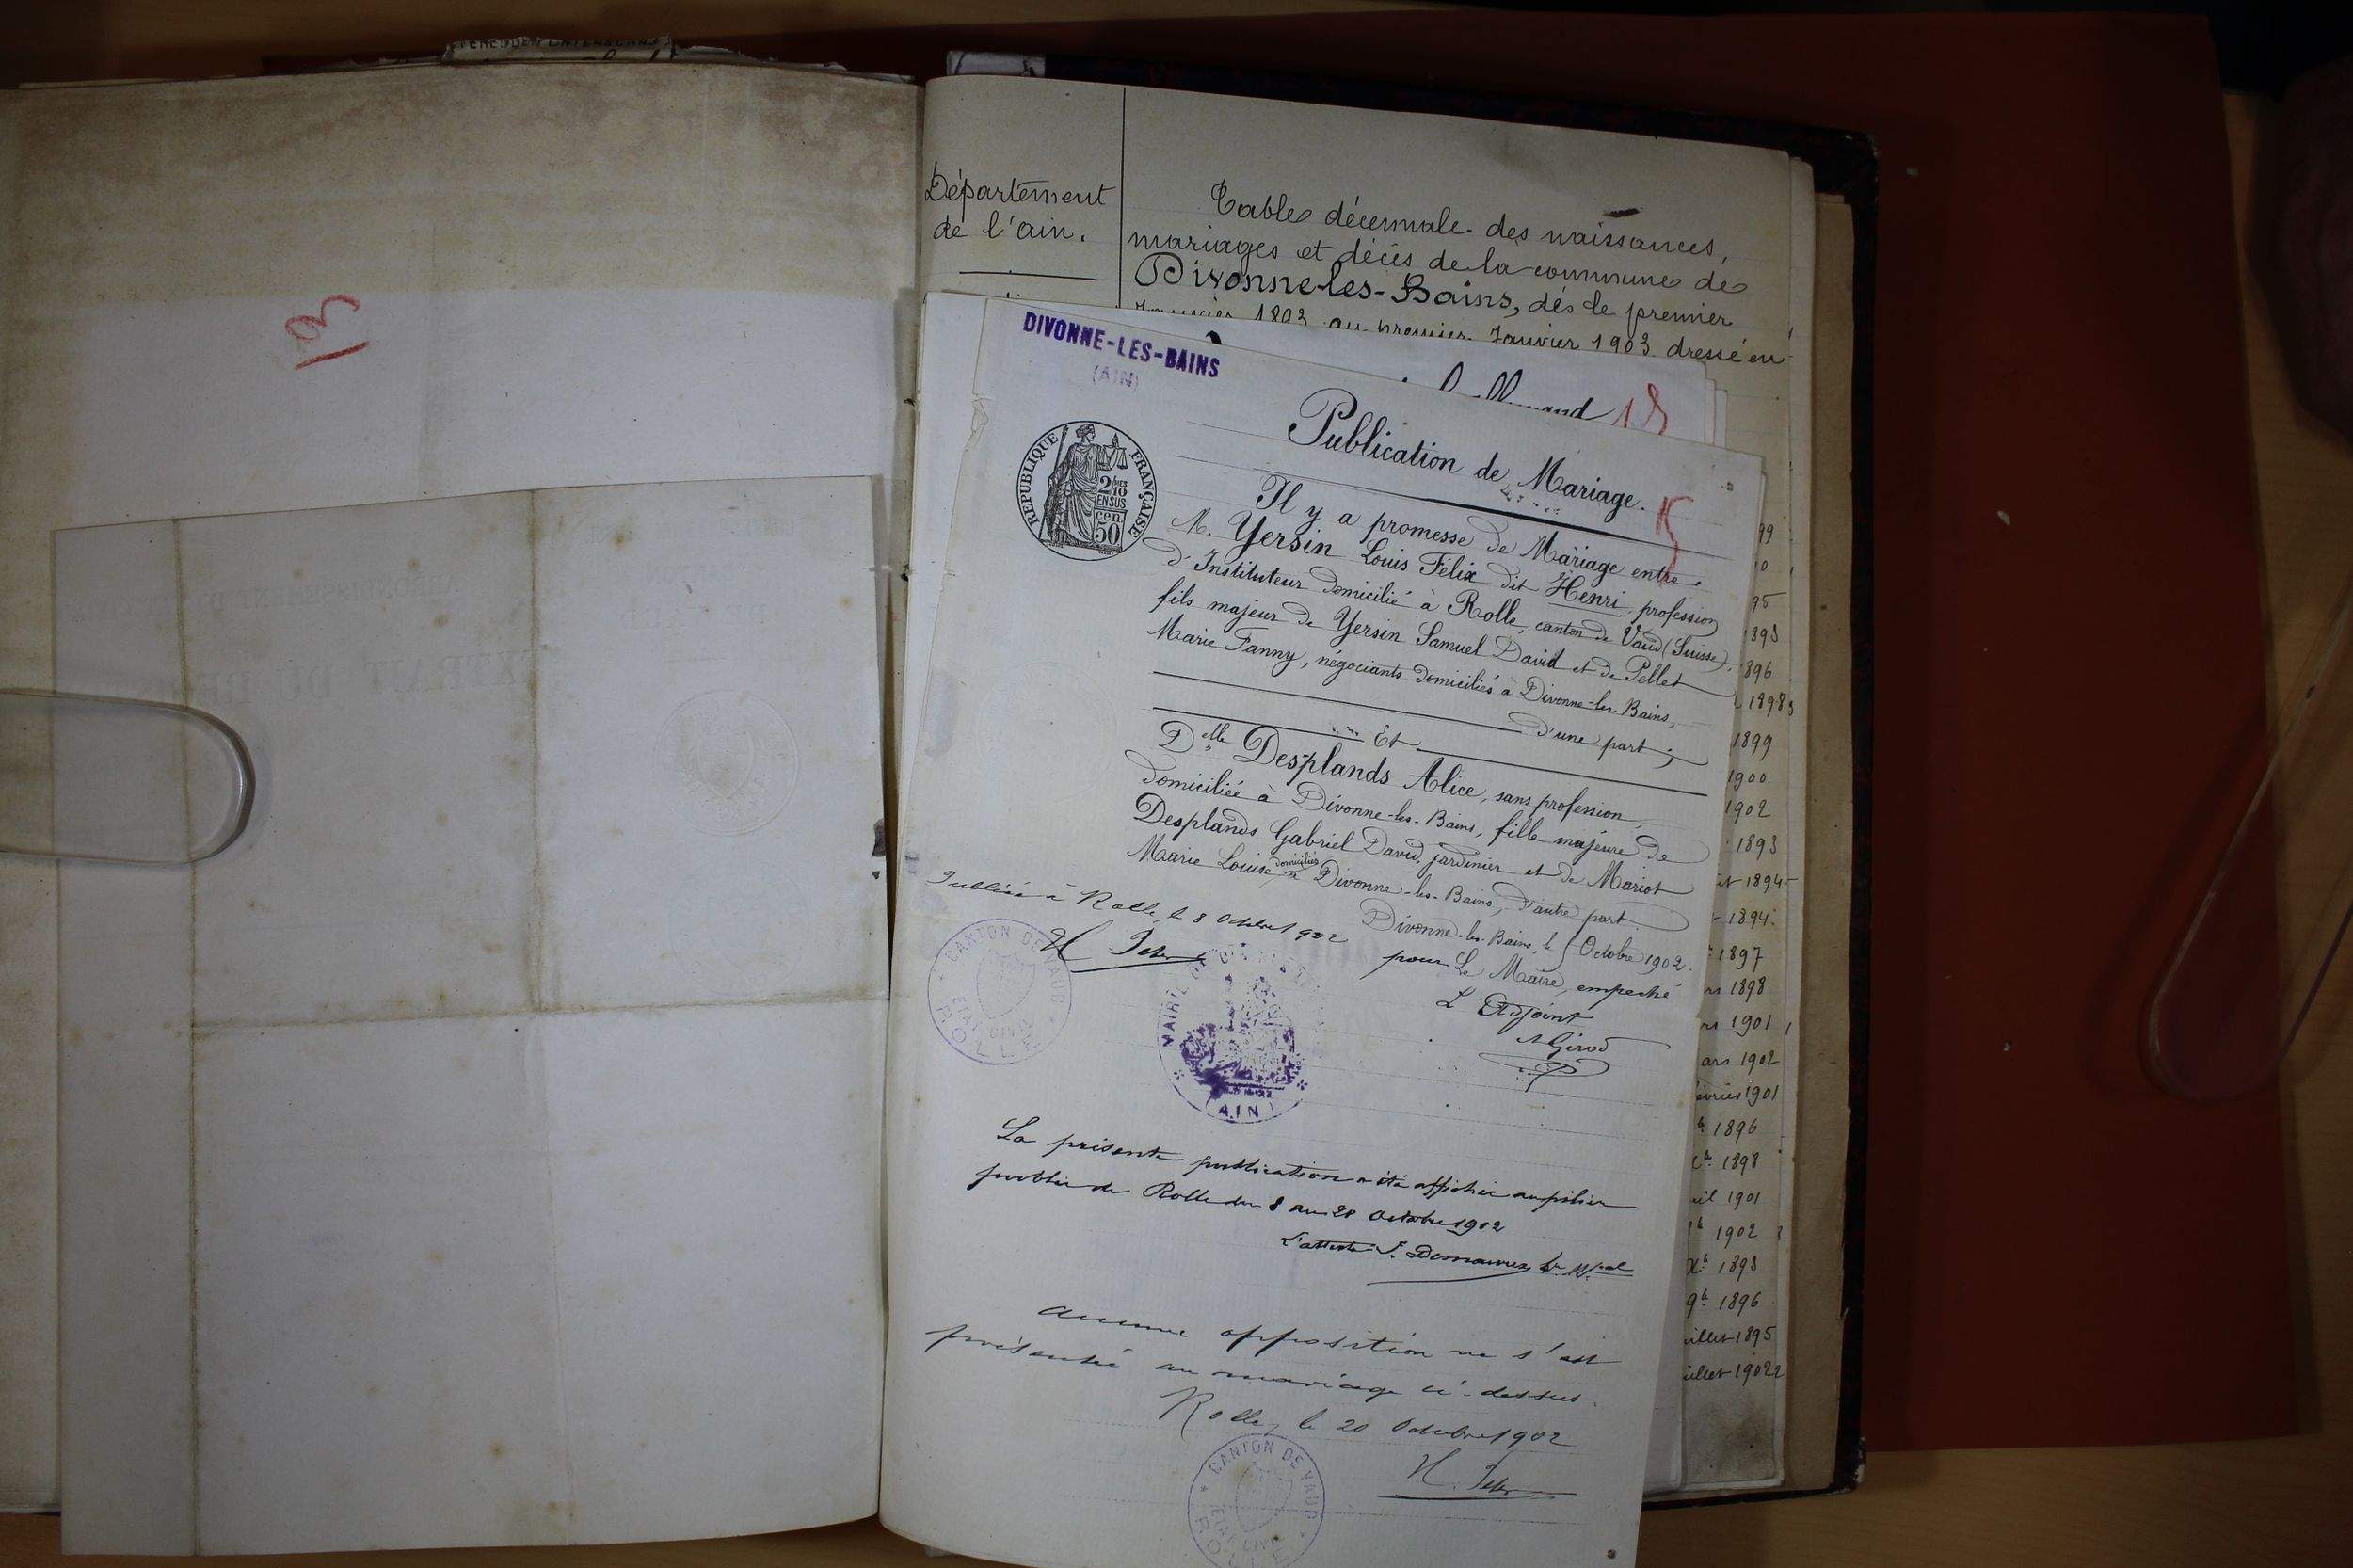 Département
de l'ain.
Table décennale des naissances,
mariages et décès de la commune de
Divonne-les-Bains, dès le premier
Janvier 1893 au premier Janvier 1903 dressé en
DIVONNE-LES-BAINS
(AIN)
Publication de Mariage.
REPUBLIQUE FRANÇAISE
2/10
EN SUS
cen.
50
Il y a promesse de Mariage entre
M. Yersin Louis Félix dit Henri, profession
d'Instituteur domicilié à Rolle, canton de Vaud (Suisse).
fils majeur de Yersin Samuel David et de Pellet
Marie Fanny, négociants domiciliés à Divonne-les-Bains,
d'une part;
Et
Delle Desplands Alice, sans profession,
domiciliée à Divonne-les-Bains, fille majeure de
Desplands Gabriel David, jardinier et de Mariot
Marie Louise domiciliés à Divonne-les-Bains, d'autre part.
Divonne-les-Bains, le Octobre 1902.
pour Le Maire, empeché
L'Adjoint
A Girod
Publiée à Rolle, le 8 Octobre 1902
CANTON DE VAUD
ETAT CIVIL
ROLLE
MAIRIE DE
(AIN)
La présente publication a été affichée au pilier
public de Rolle du 8 au 20 Octobre 1902
L'atteste
aucune opposition ne s'est
présentée au mariage ci-dessus.
Rolle, le 20 Octobre 1902
CANTON DE VAUD
ETAT CIVIL
ROLLE
99
95
1893
1896
1898
1899
1900
1902
1893
1894
1894
1897
1898
1901
1902
1901
1896
1898
1901
1902
1893
1896
1895
1902